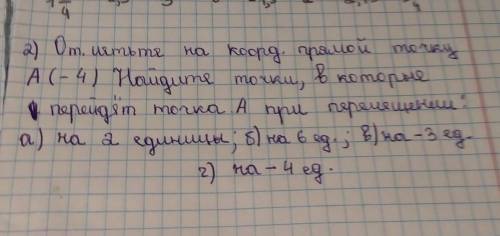 2) Отметьте на коорд. прямой точку
А (-4) Найдите точки, в которые
перейдёт точка А при перемещении:
а) на 2 единицы; б) на 6 ед.; в) на -3 ед.
г) на - 4 ед.